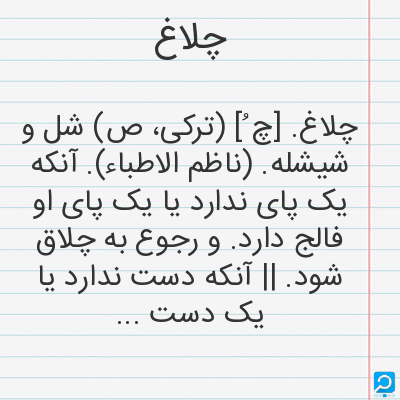 چلاغ
چلاغ. [چ ُ] (ترکی، ص) شل و
شیشله. (ناظم الاطباء). آنکه
یک پای ندارد یا یک پای او
فالج دارد. و رجوع به چلاق
شود. || آنکه دست ندارد یا
یک دست ...